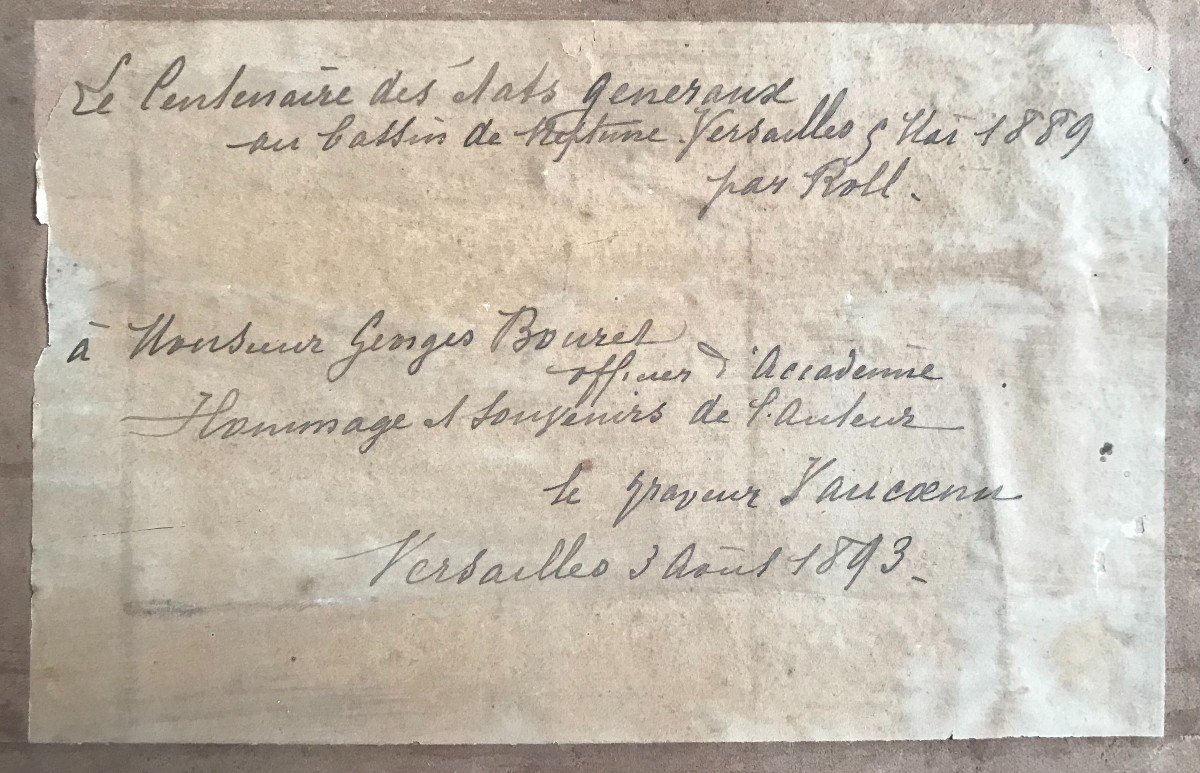 Le Centenaire des états Generaux
au bassin de Neptune Versailles 5 Mai 1889
par Roll.
à Monsieur Georges Bouret
officier d'Accadémie
Hommage et Souvenirs de l'Auteur
le graveur Vaucoenu
Versailles 3 Août 1893